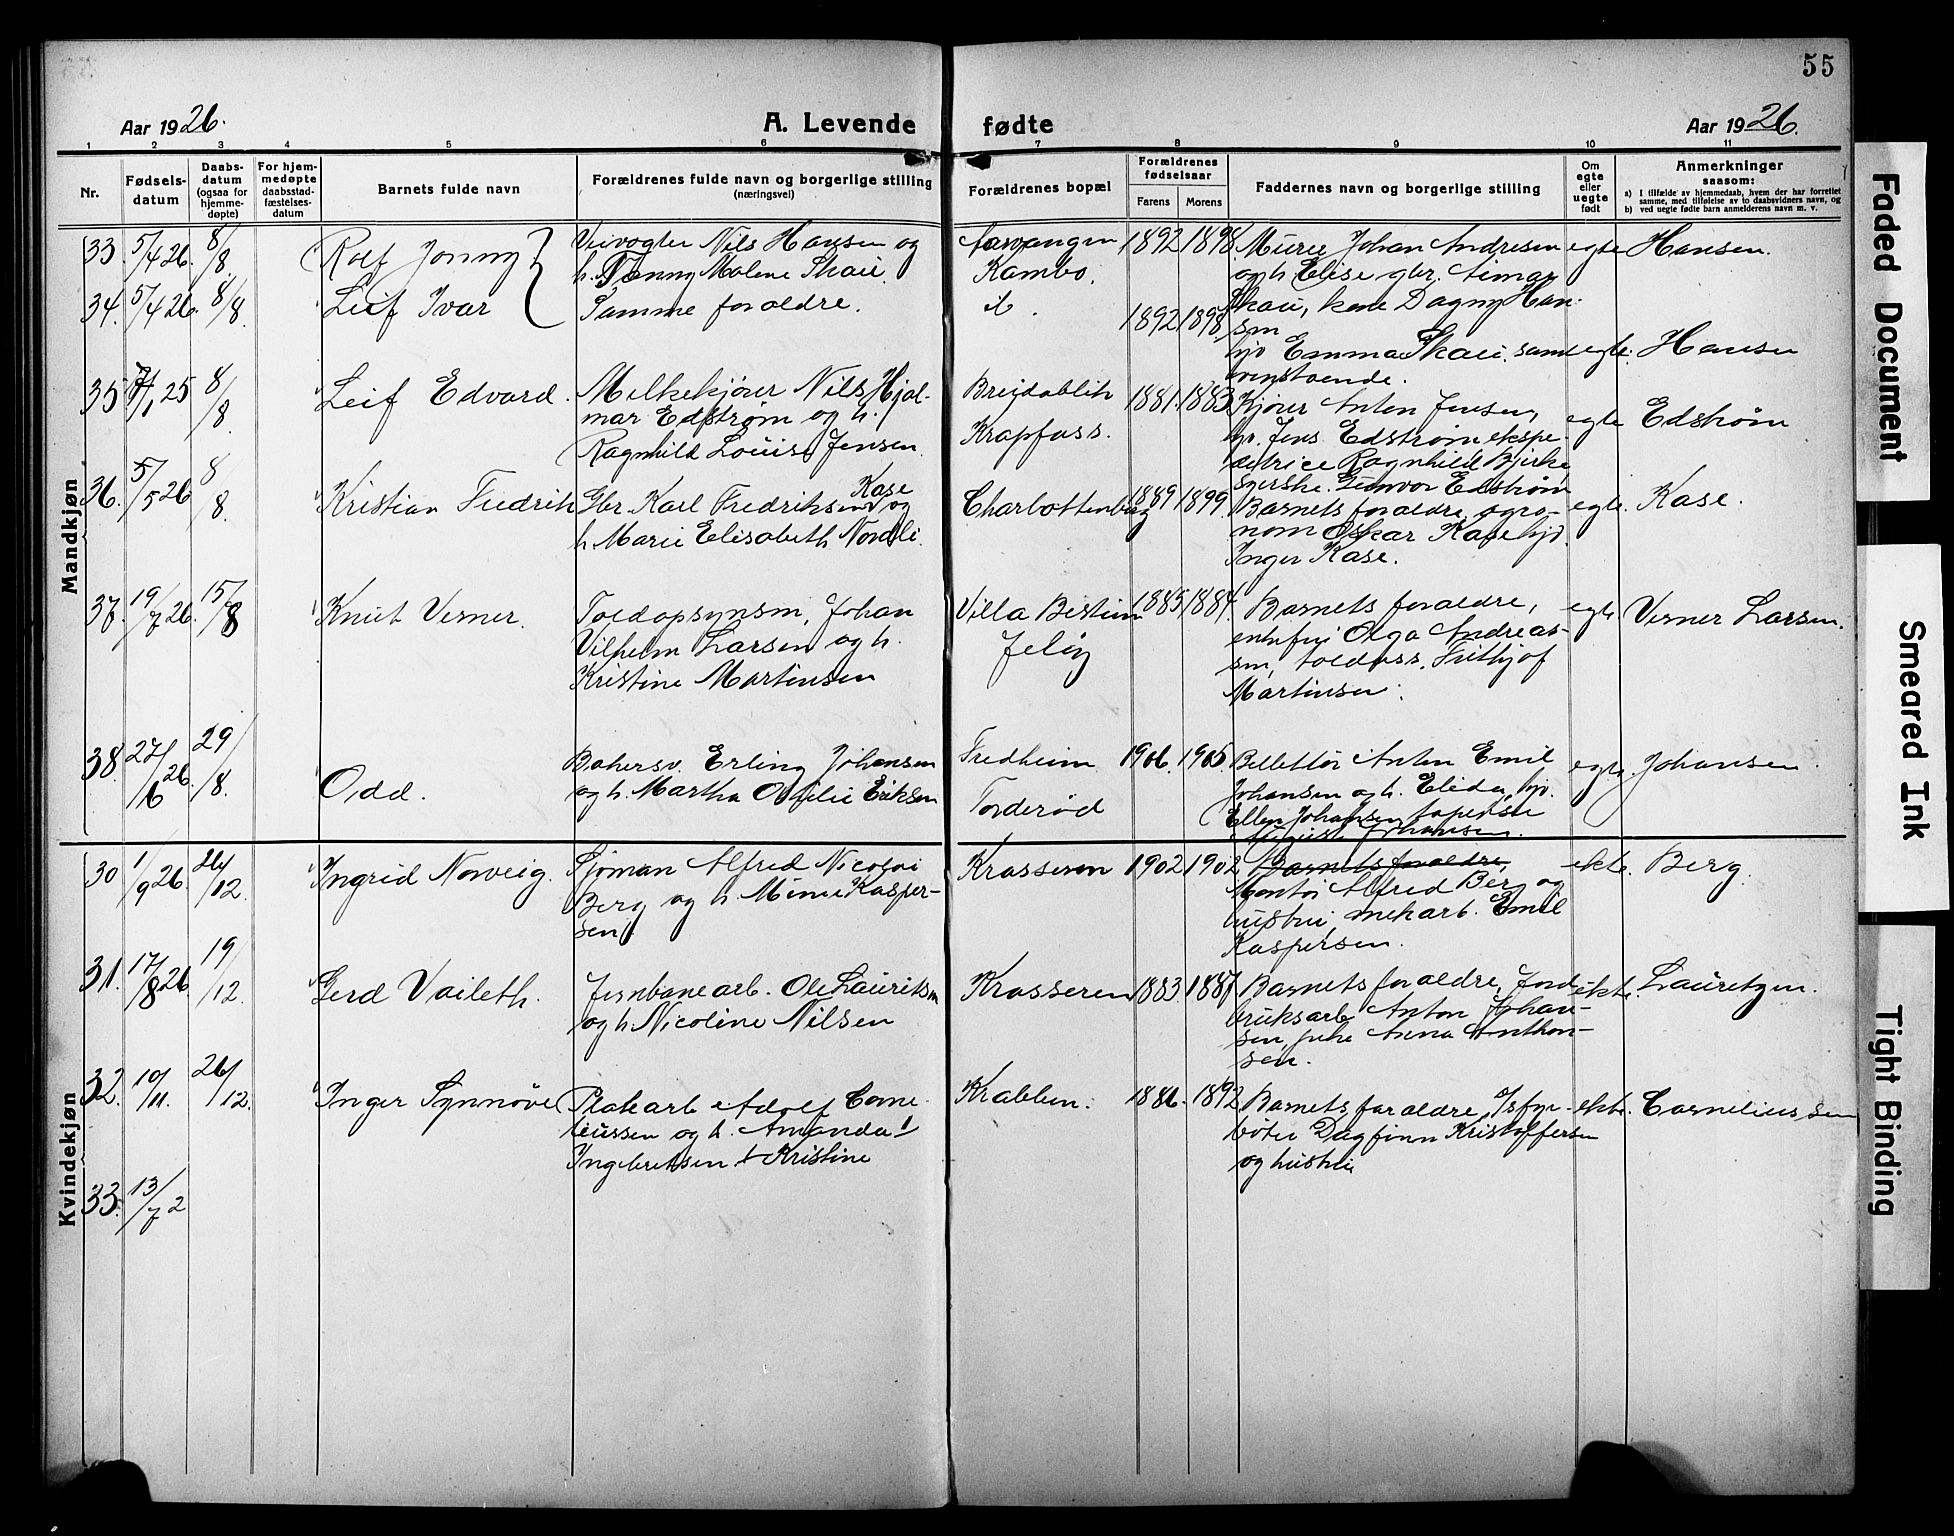 55
Aar 1926.
A. Levende fødte
Aar 1926.
1 2 3 4 5 6 7 8 9 10 11
Nr.
Fødsels-
datum
Daabs-
datum
(ogsaa for
hjemme-
døpte)
For hjem-
medøpte
daabsstad-
fæstelses-
datum
Barnets fulde navn
Forældrenes fulde navn og borgerlige stilling
(næringsvei)
Forældrenes bopæl
Forældrenes
fødselsaar
Farens Morens
Faddernes navn og borgerlige stilling
Om
egte
eller
uegte
født
Anmerkninger
saasom:
a) I tilfælde av hjemmedaab, hvem der har forrettet
samme, med tilføielse av to daabsvidners navn, og
b) ved uegte fødte barn anmelderens navn m. v.
Mandkjøn
33. 5/4 26. 8/8. Rolf Jonny
Nils Hansen og
h. Fanny Malene Skau
Kambo.
1892 1898
Murer Johan Andresen
og h Elise gbr.
Skau, Dagny Han-
sen
Emma Skau.
egte Hansen.
34. 5/4 26. 8/8. Leif Ivar
Samme foraldre.
1892 1898
egte. Hansen
35 25 8/8. Leif Edvard.
Melkekjører Nils Hjal-
mar Edstrøm og h.
Ragnhild Louise Jensen
Breidablik
Krapfoss.
1881. 1883
Kjører Anton Jensen,
Jens Edstrøm ekspe-
ditrice Ragnhild Bjirke
Gunvor Edstrøm
egte Edstrøm
36. 5/5 26 8/8. Kristian Fredrik
Gbr. Karl Fredriksen Kase og
h Marie Elisabeth Nordli.
Charlottenberg
1889 1899.
Barnets foraldre, agro-
nom Oskar Kase
Inger Kase.
egte. Kase.
37. 19/7 26. 15/8 Knut Verner.
Toldopsynsm. Johan
Vilhelm Larsen og h.
Kristine Martinsen
Villa
Jeløy
1885 1884.
Barnets foraldre,
enkefru Olga Andreas-
sen, toldass. Frithjof
Martinsen.
egte. Verner Larsen.
38. 27/6 26 29/8. Odd.
Bakersv. Erling Johansen
og h. Martha Otilie Eriksen
Fredheim
Torderød
1906. 1905.
Billettør Anton Emil
Johansen og h. Elida,
Ellen Johansen,
Johansen.
egte. Johansen.
Kvindekjøn
30 1/9 26. 26/12. Ingrid Norveig.
Sjøman Alfred Nicolai
Berg og h. Minni Kasper-
sen
Krasseren
1902 1902
Barnets foraldre,
Montør Alfred Berg og
hustru, mekarb. Emil
Kaspersen.
ekte. Berg.
31. 17/8 26 19/12. Gerd Vaileth.
Jernbanearb. Ole Lauritsen
og h. Nicoline Nilsen
Krasseren
1883. 1887
Barnets foraldre, Jord
bruksarb. Anton Johan-
sen, Anna Anthon-
sen.
ekte. Lauretzen.
32. 10/11. 26/12. Inger Synnøve
Adolf Corne-
liussen og h. Amanda
Ingebretsen Kristine
Krabben.
1886. 1892
Barnets foraldre, Isfyr-
bøter Dagfinn Kristoffersen
og hustru
ekte. Corneliussen
33. 13/7 2
Faded Document
Smeared Ink
Tight Binding